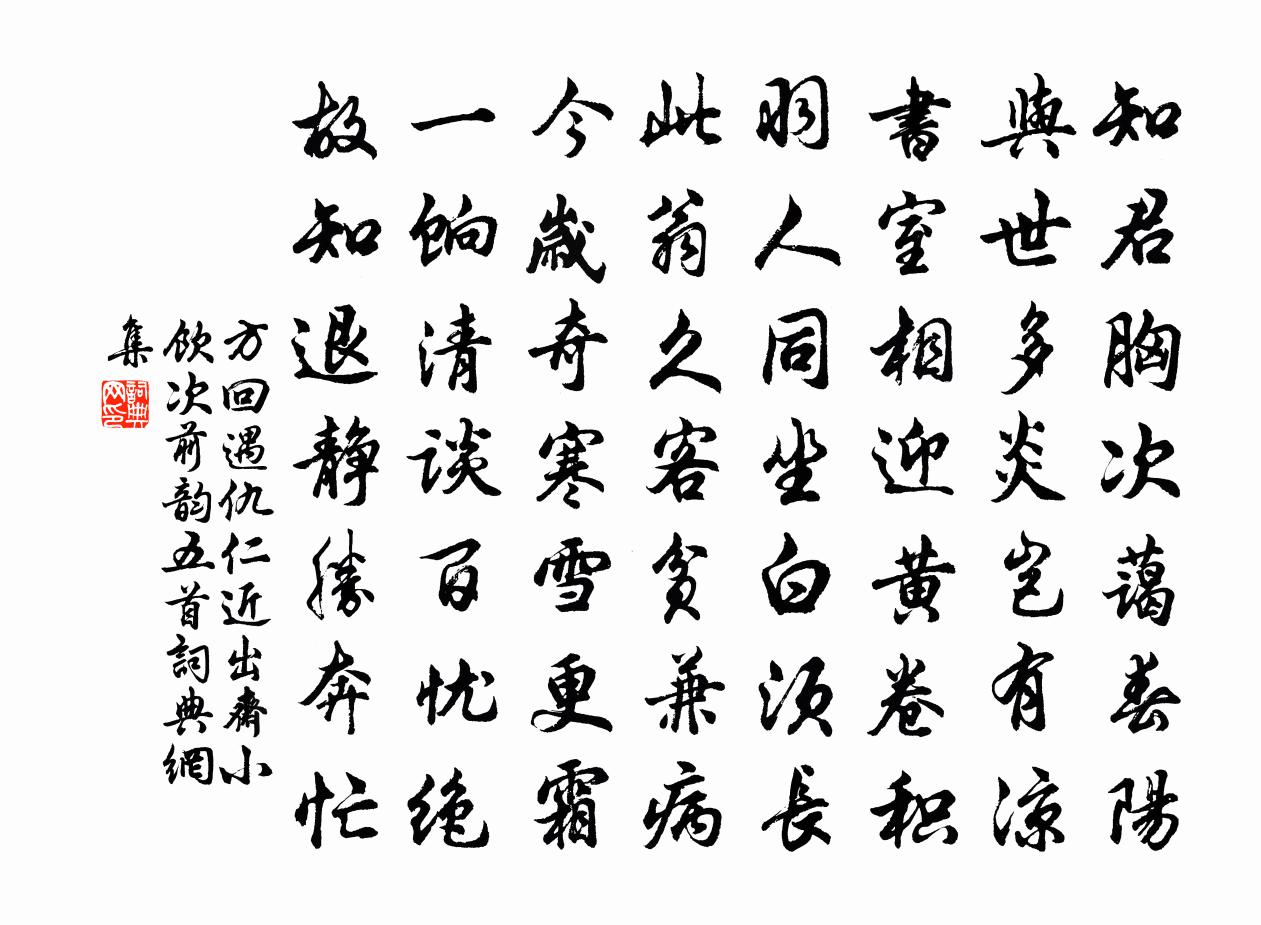 知君胸次蔼春陽
與世多炎岂有涼
書室相迎黄卷积
羽人同坐白须長
此翁久客贫兼病
今歲奇寒雪更霜
一饷清谈百忧绝
故知退静勝奔忙
方回遇仇仁近出齋小
飲次前韵五首詞典網
集
詞典網印